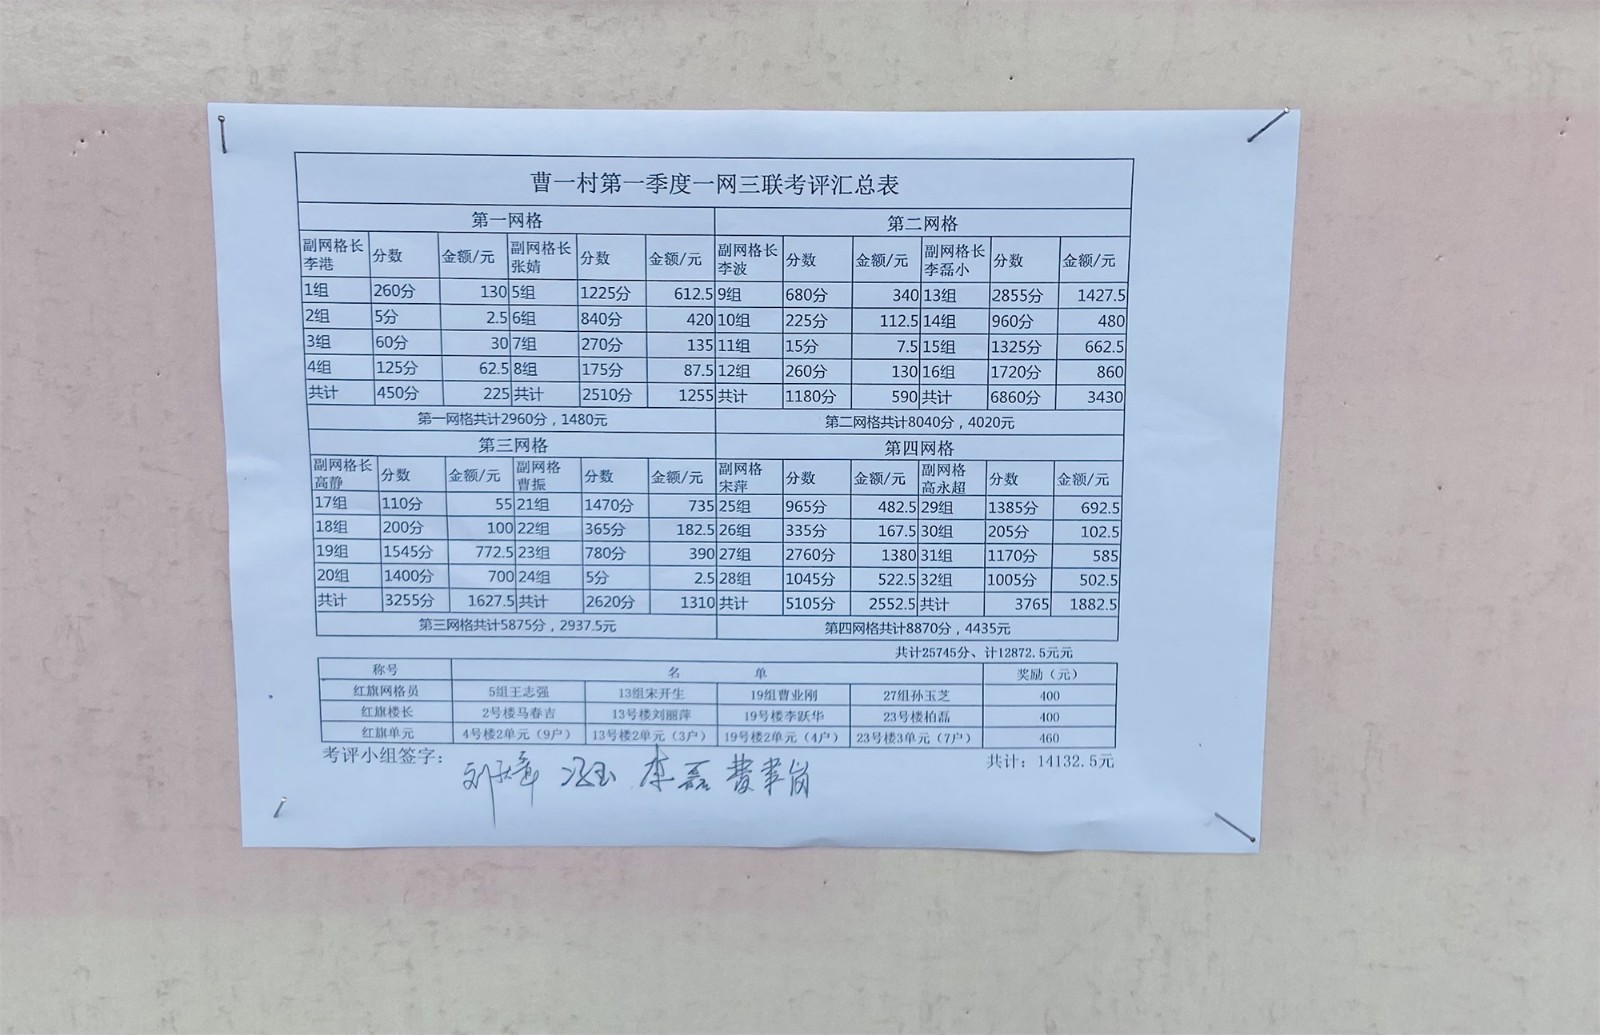 曹一村第一季度一网三联考评汇总表
第一网格 第二网格
副网格长李港 分数 金额/元 副网格长张婧 分数 金额/元 副网格长李波 分数 金额/元 副网格长李磊小 分数 金额/元
1组 260分 130 5组 1225分 612.5 9组 680分 340 13组 2855分 1427.5
2组 5分 2.5 6组 840分 420 10组 225分 112.5 14组 960分 480
3组 60分 30 7组 270分 135 11组 15分 7.5 15组 1325分 662.5
4组 125分 62.5 8组 175分 87.5 12组 260分 130 16组 1720分 860
共计 450分 225 共计 2510分 1255 共计 1180分 590 共计 6860分 3430
第一网格共计2960分，1480元 第二网格共计8040分，4020元
第三网格 第四网格
副网格长高静 分数 金额/元 副网格曹振 分数 金额/元 副网格宋萍 分数 金额/元 副网格高永超 分数 金额/元
17组 110分 55 21组 1470分 735 25组 965分 482.5 29组 1385分 692.5
18组 200分 100 22组 365分 182.5 26组 335分 167.5 30组 205分 102.5
19组 1545分 772.5 23组 780分 390 27组 2760分 1380 31组 1170分 585
20组 1400分 700 24组 5分 2.5 28组 1045分 522.5 32组 1005分 502.5
共计 3255分 1627.5 共计 2620分 1310 共计 5105分 2552.5 共计 3765 1882.5
第三网格共计5875分，2937.5元 第四网格共计8870分，4435元
共计25745分、计12872.5元元
称号 名 单 奖励（元）
红旗网格员 5组王志强 13组宋开生 19组曹业刚 27组孙玉芝 400
红旗楼长 2号楼马春吉 13号楼刘丽萍 19号楼李跃华 23号楼柏磊 400
红旗单元 4号楼2单元（9户） 13号楼2单元（3户） 19号楼2单元（4户） 23号楼3单元（7户） 460
考评小组签字： 李磊 共计：14132.5元